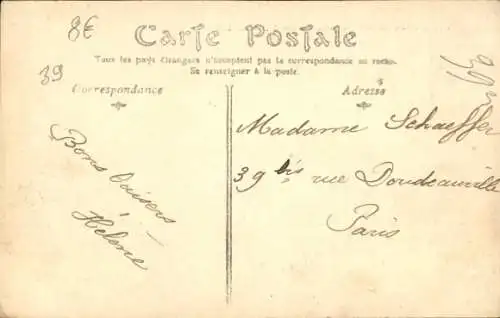 8€
Carte Postale
Tous les pays étrangers n'acceptent pas la correspondance au recto.
Se renseigner à la poste.
39
Correspondance
Adresse
Bons baisers
Hélène
Madame Schaeffer
39 bis rue Doudeauville
Paris